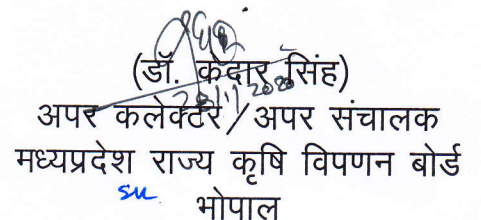 (डॉ. केदार सिंह)
अपर कलेक्टर / अपर संचालक
मध्यप्रदेश राज्य कृषि विपणन बोर्ड
भोपाल